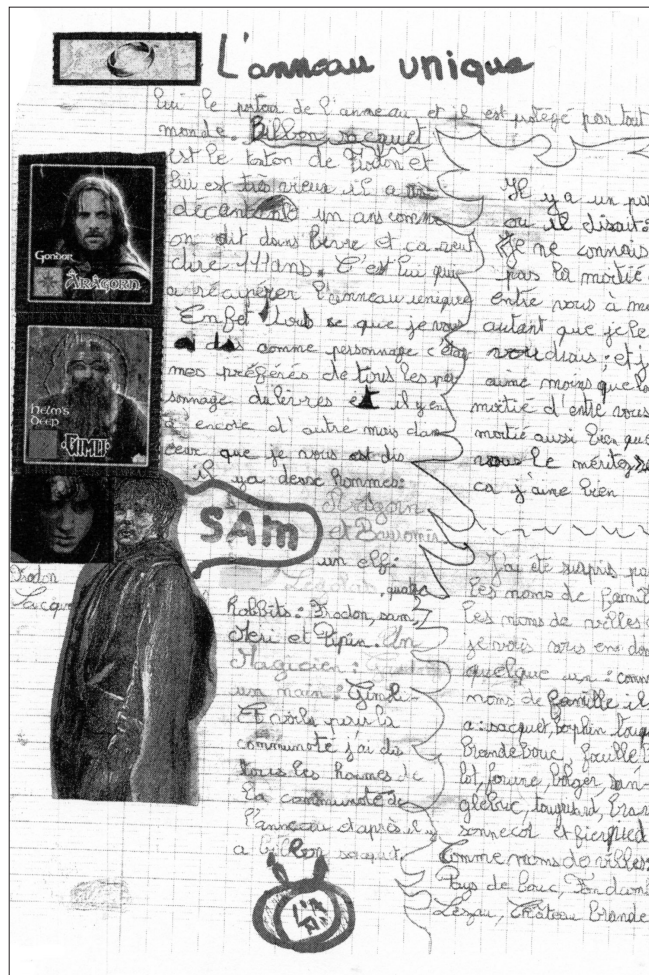 L'anneau unique
lui le porteur de l'anneau et il est protégé par tout
monde. Bilbon sacquet
est le tonton de Frodon et
lui est très vieux il a
décantante un ans comme
on dit dans livre et ça veut
dire 111 ans. C'est lui qui
a récupérer l'anneau unique
Enfet tous se que je vous
a dis comme personnage c'était
mes préférés de tous les per
sonnage du livres et il y en
a encore d'autre mais dans
ceux que je vous est dis
il ya desse hommes:
Aragorn
et Boromir
un elf:
Legolas, quatre
hobbits: Frodon, sam,
Meri et Pipin. Un
Magicien: Gandalf
un nain: Gimli
Et voila pour la
communoté j'ai dis
tous les hommes de
la communoté de
l'anneau et après il y
a bilbon sacquet.
Gondor
ARAGORN
HELM'S DEEP
GIMLI
SAM
Frodon
Sacquet
Il y a un pas
ou il disait:
Je ne connais
pas la moitié
entre vous à moi
autant que je le
voudrais; et j
aime moins que la
moitié d'entre vous
moitié aussi bien que
vous le méritez
ca j'aime bien
J'ai été surpris par
Les noms de famille
Les noms de villes
je vais vous en don
quelque un: comme
noms de famille il
a: sacquet, bophin, touque
Brandebouc, fouille
lot, fourne, bolger, san-
glebuc, touquard, bran
sonnecor et fierpied
Comme noms de villes:
Pays de bouc,
Château Brande